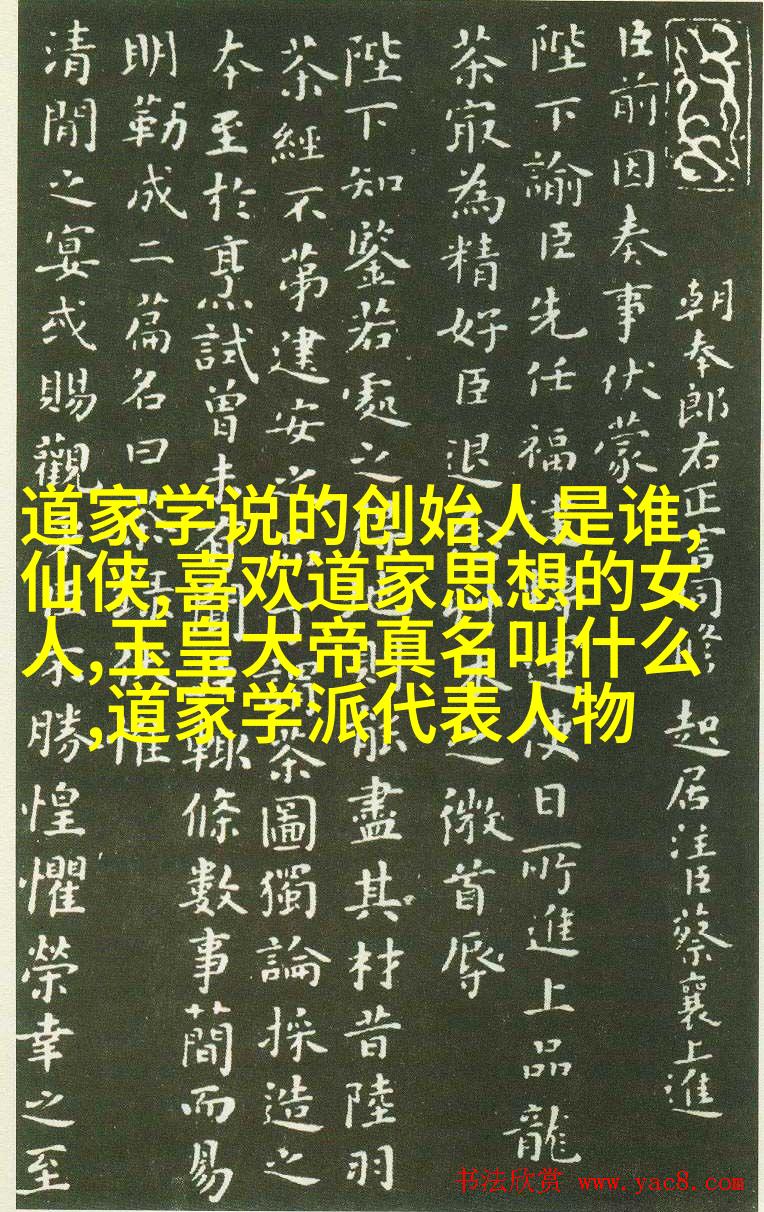 朝奉郎右正言同修 起居注臣蔡襄上進
臣前因奏事伏蒙
陛下諭臣先任福運使日所進上品龍
茶寂為精好臣退之微首辱
陛下知鑒若處之能盡其材昔陸羽
茶經不第建安之茶圖獨論採造之
本至於烹試曾未有聞輒條數事簡而易
明勒成二篇名曰惟
清閒之宴或賜觀勝惶懼榮幸之至
道家学说的创始人是谁,
仙侠,喜欢道家思想的女
人,玉皇大帝真名叫什么
,道家学派代表人物
书法欣赏 www.yac8.com